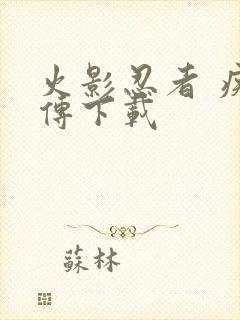 火影忍者 疾
傳下載
蘇林